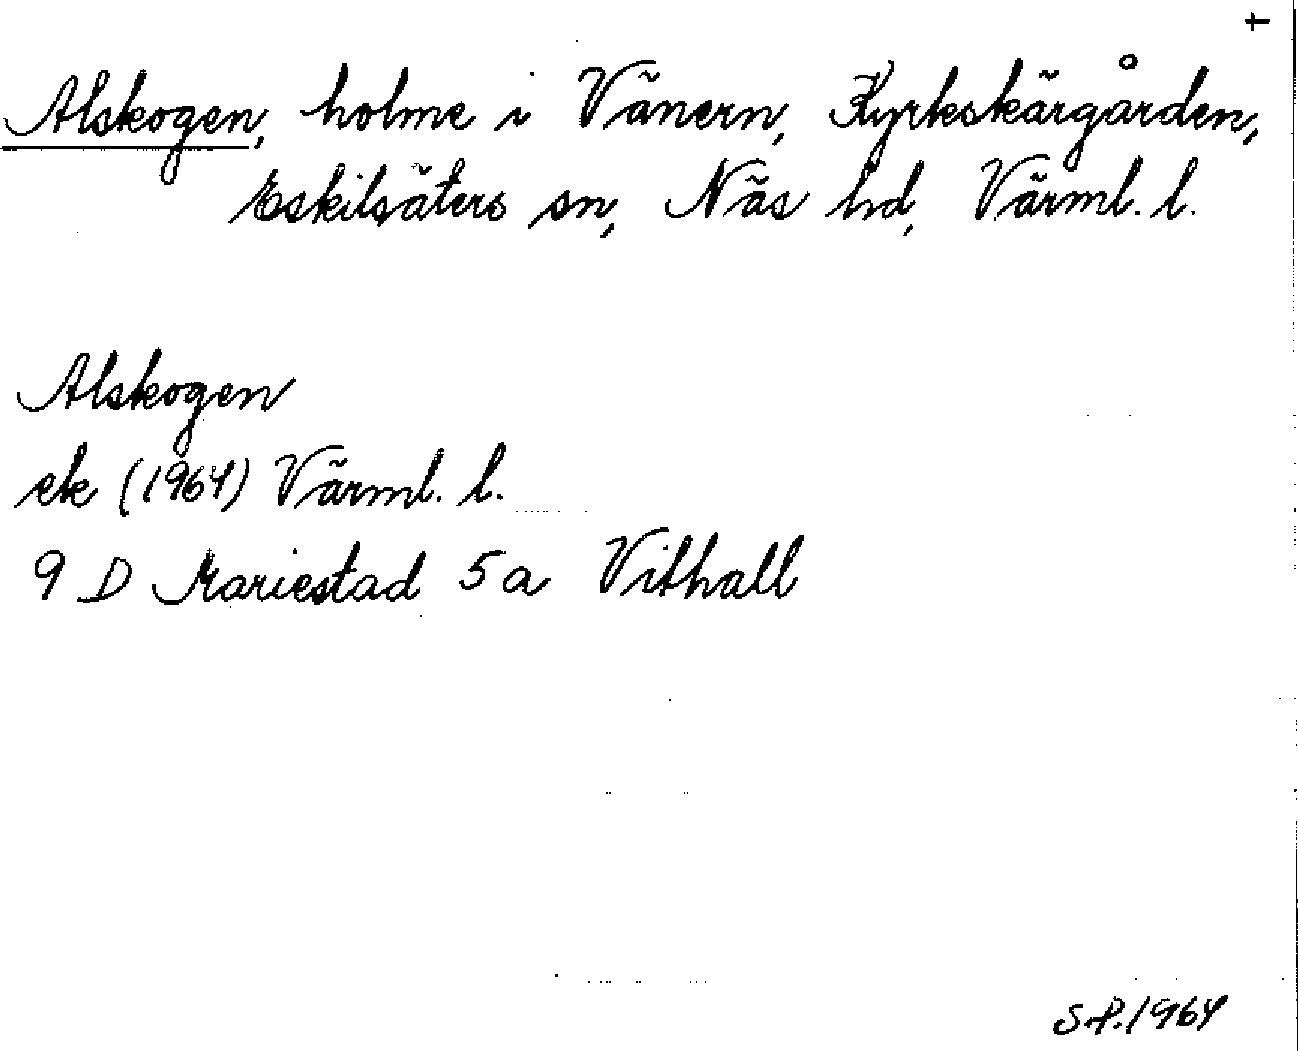 †
Alskogen, holme i Vänern, Kyrkskärgården,
Eskilsäters sn, Näs hd, Värml. l.
Alskogen
ek (1964) Värml. l.
9 D Mariestad 5 a Vithall
S.P. 1964